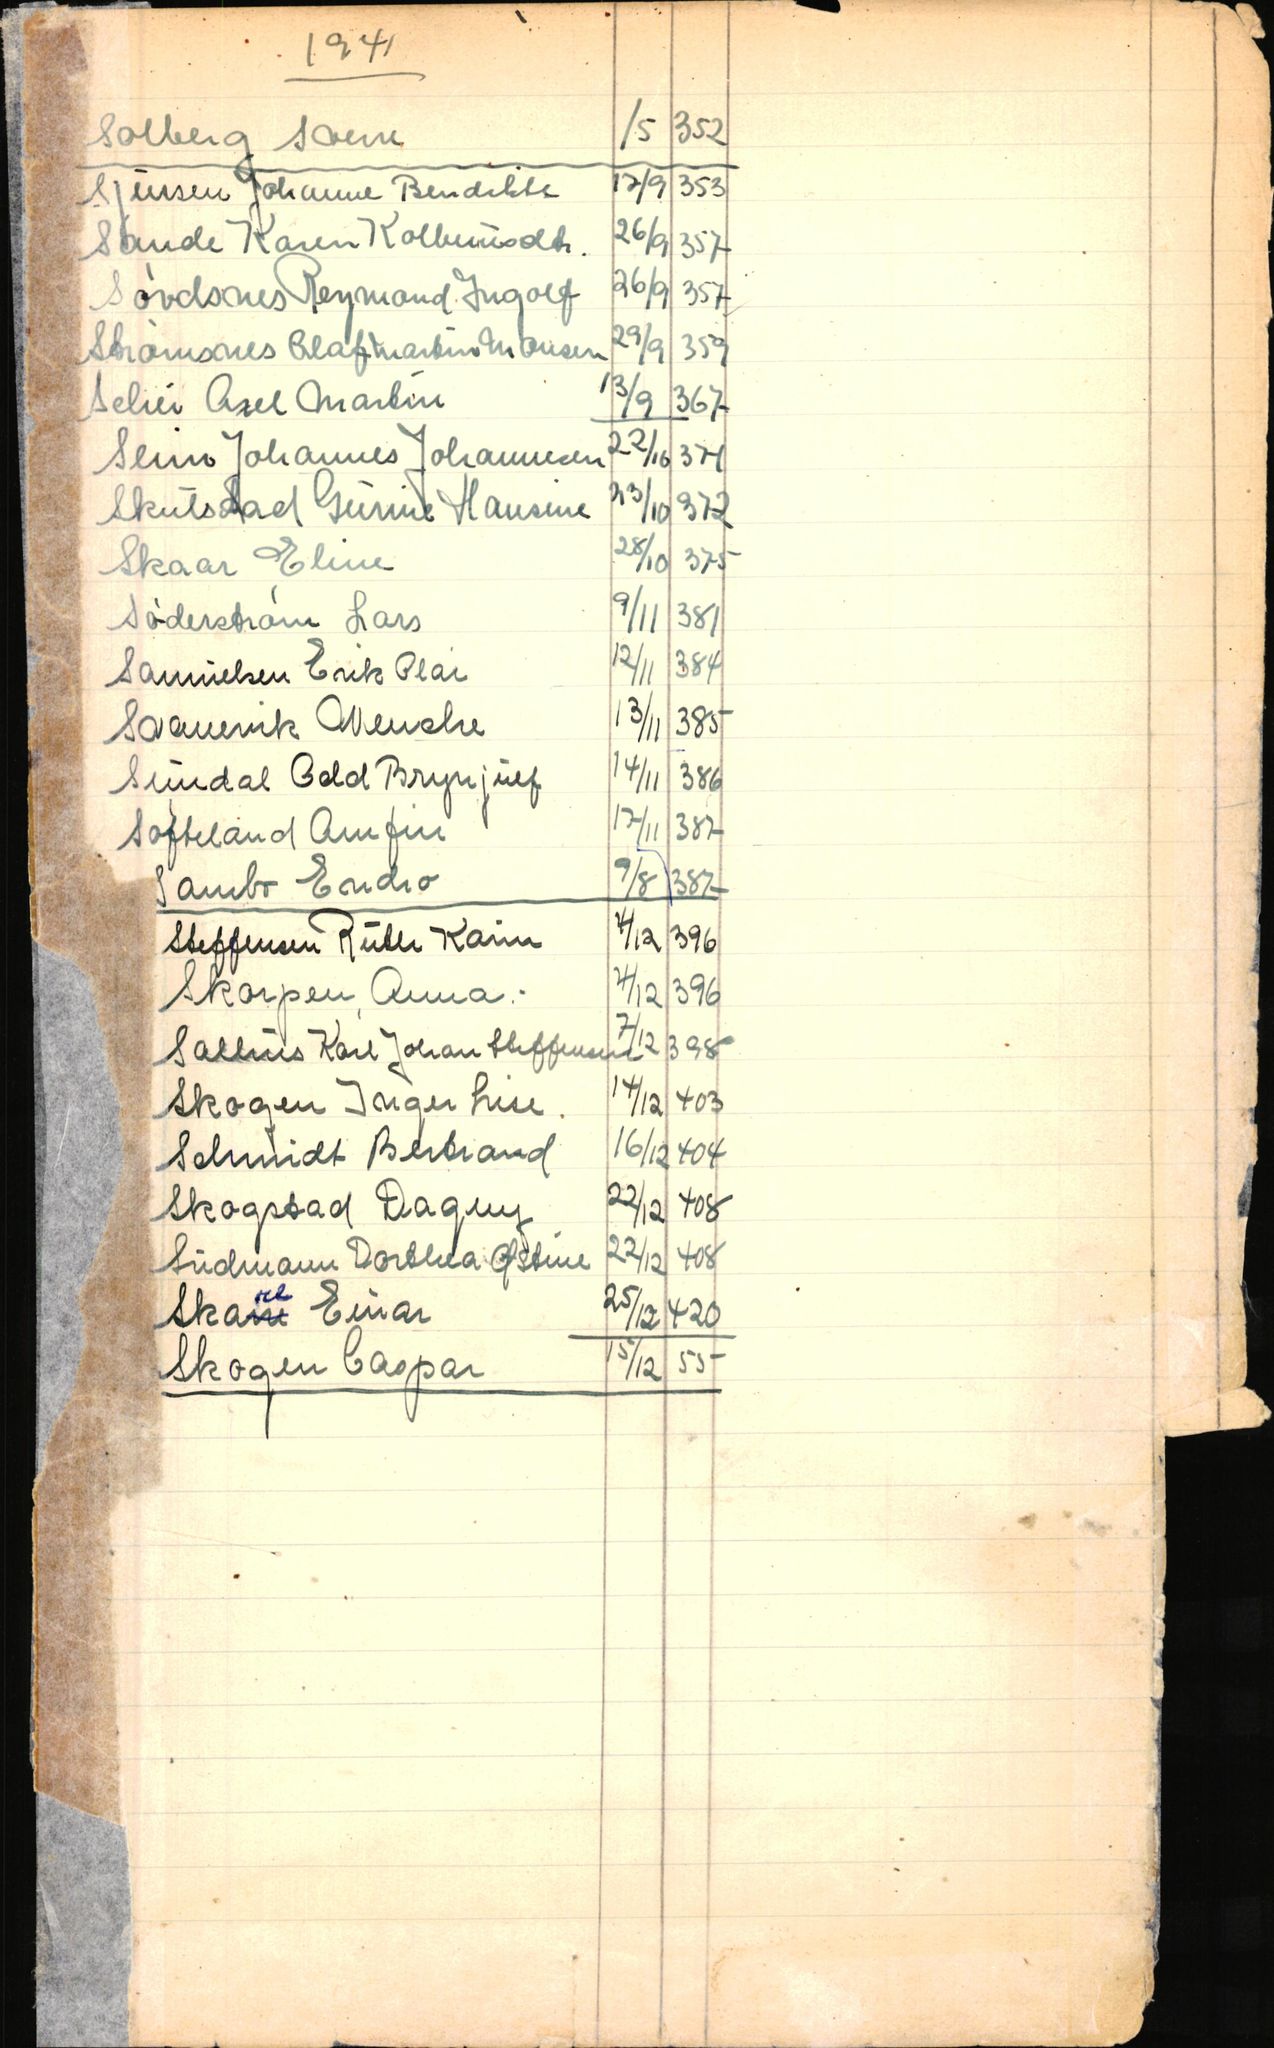 1941
Solberg Soeve /5 352
Sjursen Johanne Bendikte 17/9 353
Sande Karen Kolbeinsdtr. 26/9 357
Sövdsnes Reymond Ingolf 26/9 357
Strømsnes Olaf Martin Monsen 29/9 359
Schei Axel Martin 13/9 367
Seim Johannes Johannesen 22/10 371
Skutstad Gurine Hansine 23/10 372
Skaar Eline 28/10 375
Söderström Lars 9/11 381
Samuelsen Erik Olai 12/11 384
Svanevik Wenche 13/11 385
Sundal Odd Brynjulf 14/11 386
Softeland Arnfin 17/11 387
Sambo Endre 9/8 387
Steffensen Ruth Karin 4/12 396
Skorpen Anna 4/12 396
Sallius Karl Johan Steffensen 7/12 398
Skogen Inger Lise. 14/12 403
Schmidt Bertrand 16/12 404
Skogstad Dagny 22/12 408
Sudmann Dorthea Östine 22/12 408
Einar 25/12 420
Skogen Caspar 15/12 55